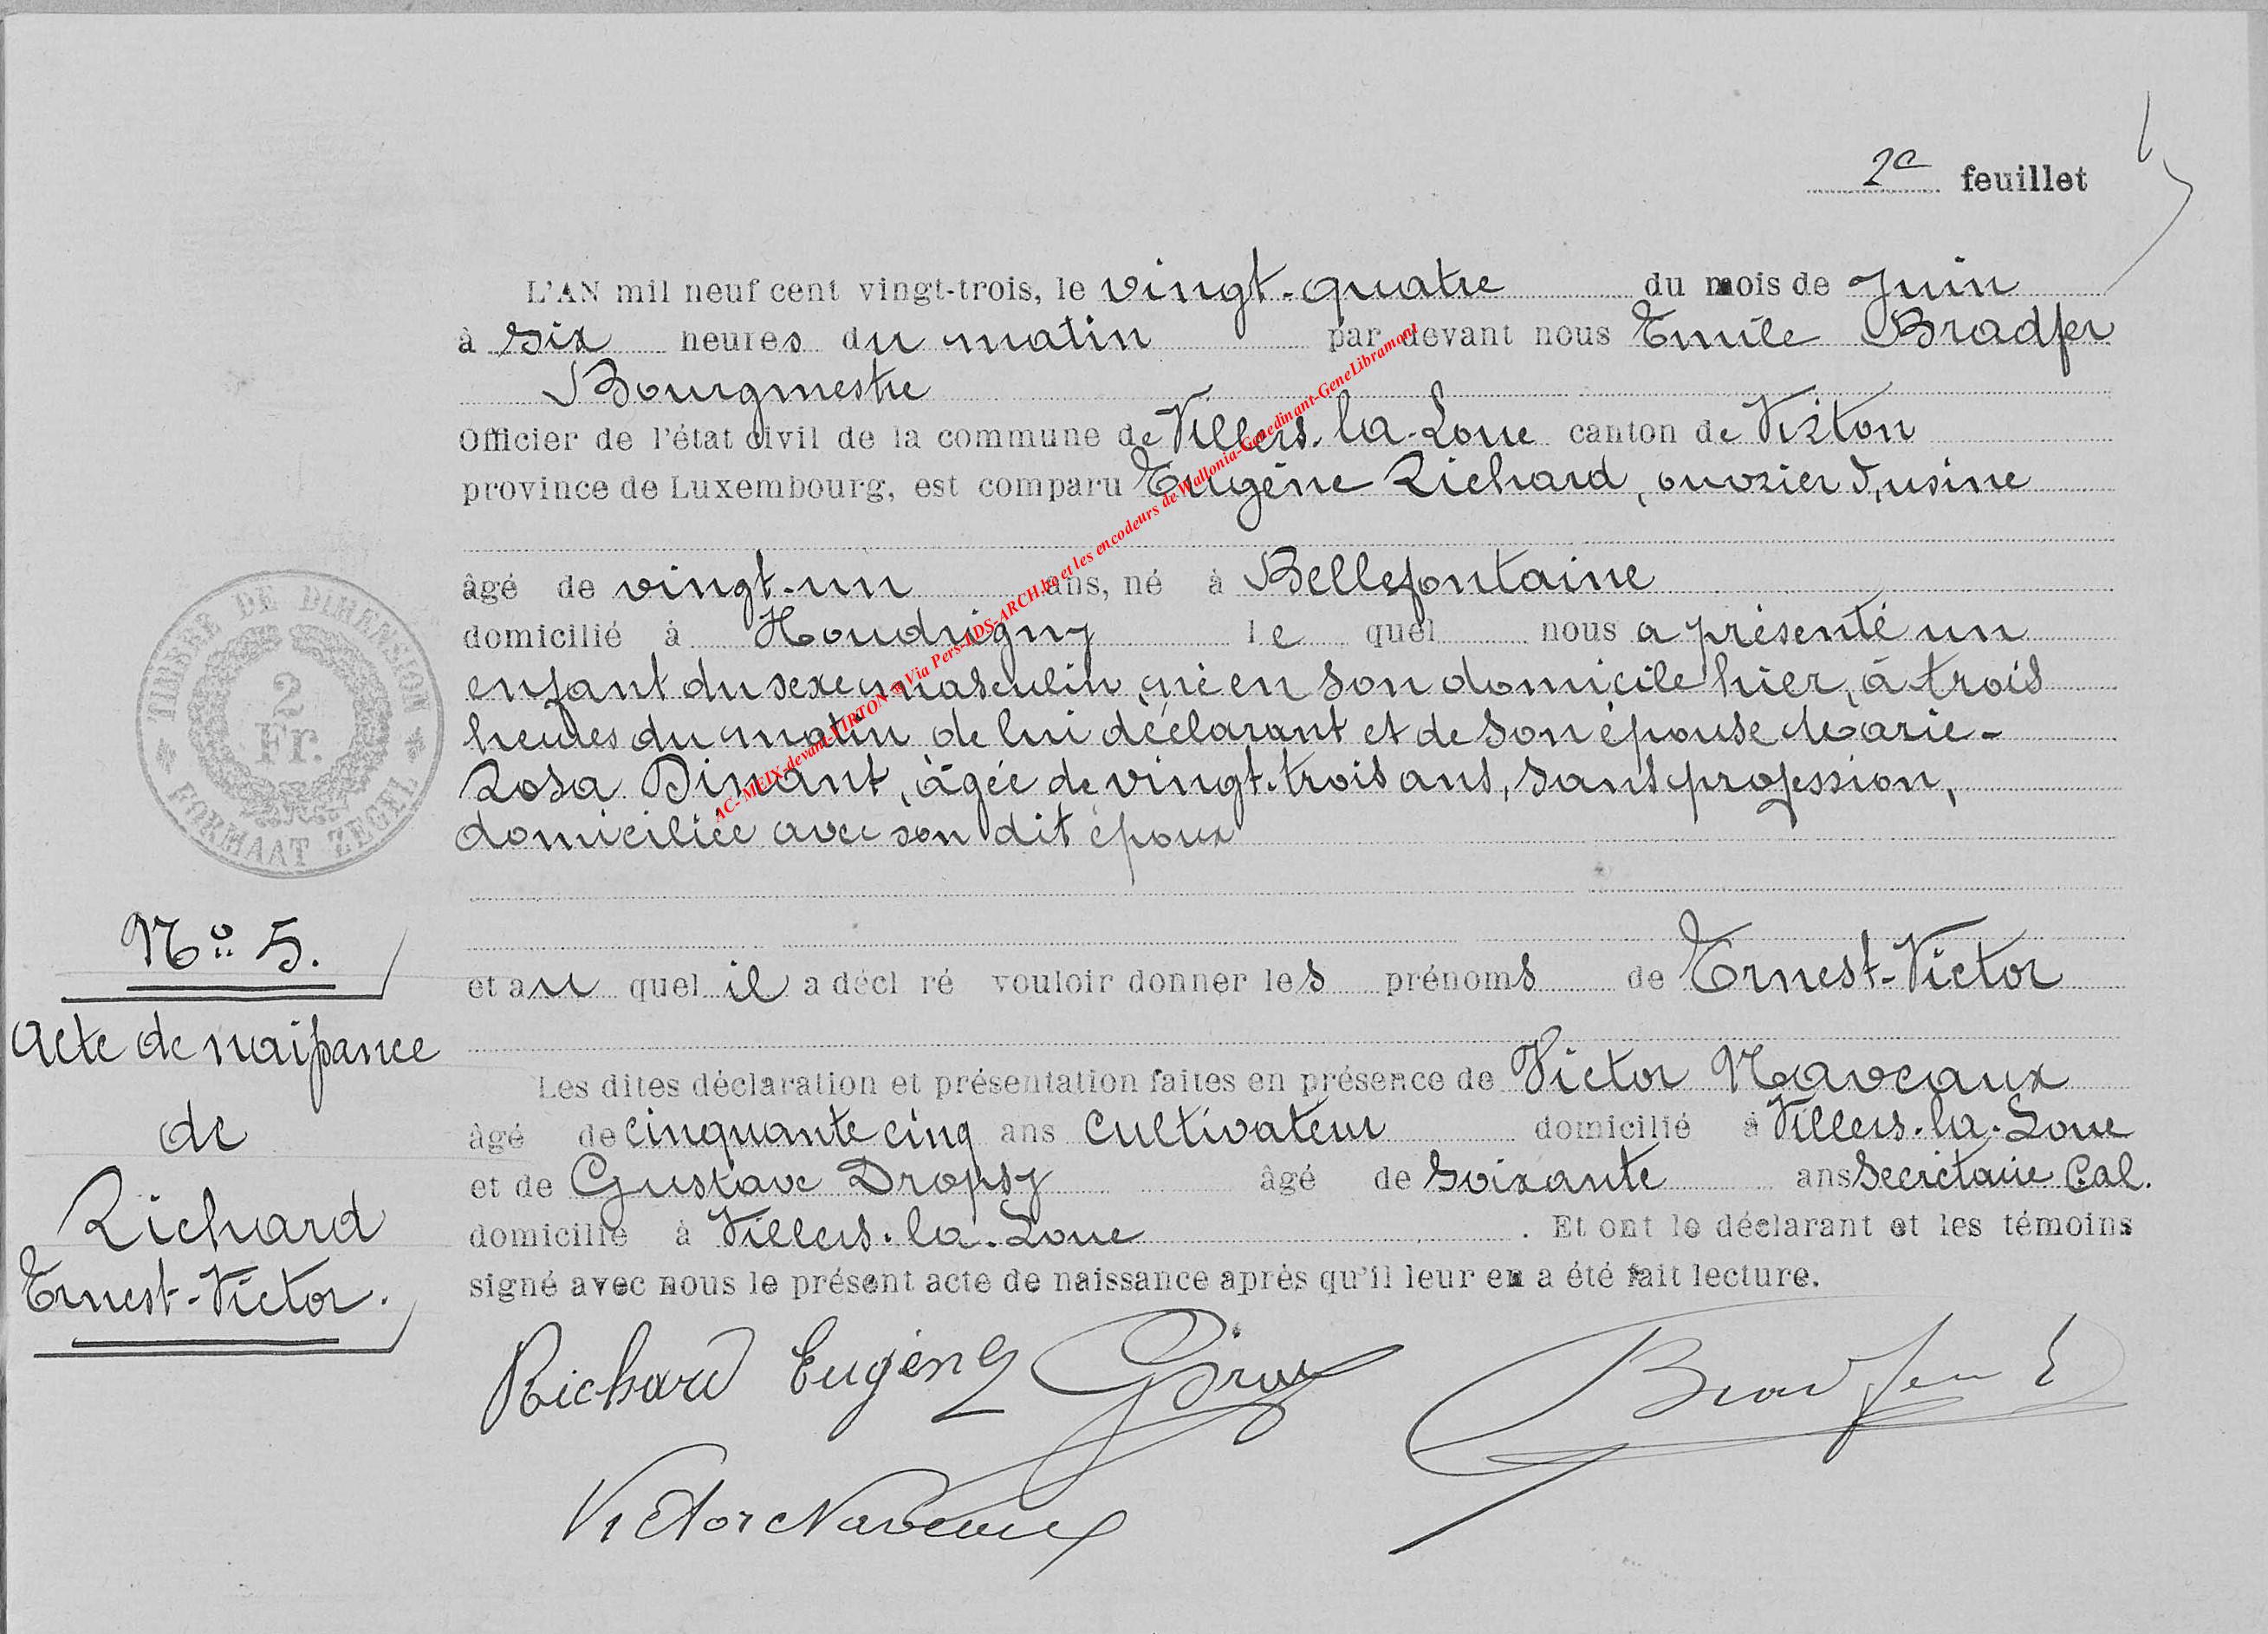 2e feuillet
L'AN mil neuf cent vingt-trois, le vingt-quatre du mois de Juin
à six heures du matin par devant nous Emile Bradfer
Bourgmestre
Officier de l'état civil de la commune de Villers-la-Loue canton de Virton
province de Luxembourg, est comparu Eugène Richard, ouvrier d'usine
âgé de vingt-un ans, né à Bellefontaine
domicilié à Houdrigny le quel nous a présenté un
enfant du sexe masculin, né en son domicile hier, à trois
heures du matin de lui déclarant et de son épouse Marie-
Rosa Dinant, âgée de vingt-trois ans, sans profession,
domiciliée avec son dit époux
et au quel il a décl ré vouloir donner les prénoms de Ernest-Victor
Les dites déclaration et présentation faites en présence de Victor Naveaux
âgé de cinquante cinq ans cultivateur domicilié à Villers-la-Loue
et de Gustave Dropsy âgé de soixante ans Secrétaire Cal.
domicilié à Villers-la-Loue. Et ont le déclarant et les témoins
signé avec nous le présent acte de naissance après qu'il leur en a été fait lecture.
Richard Eugène
Bradfer E
Victor Naveaux
TIMBRE DE DIMENSION
2
Fr.
FORMAAT ZEGEL
No 5.
Acte de naissance
de
Richard
Ernest-Victor.